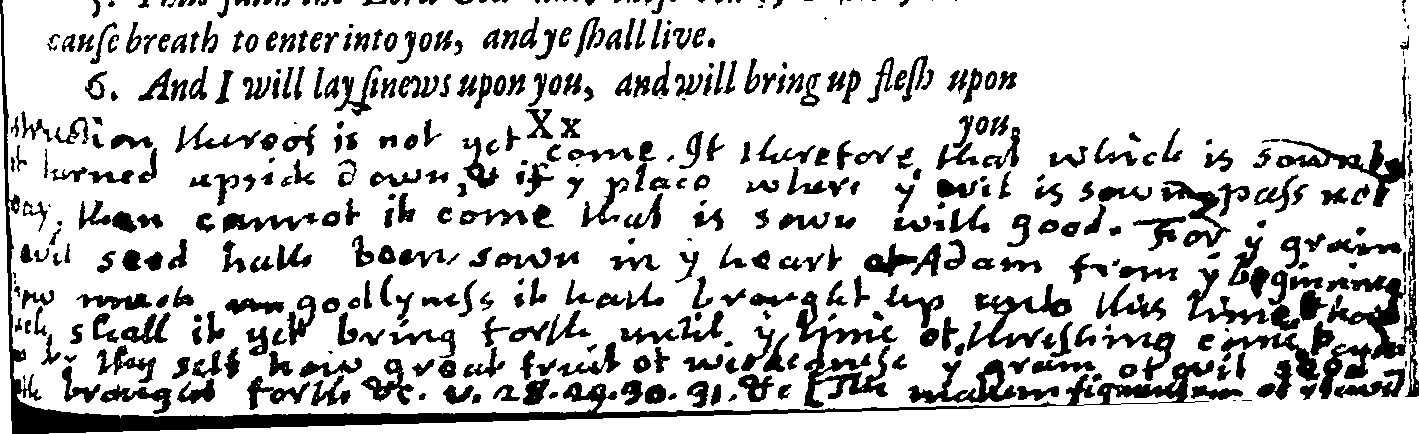 cauſe breath to enter into you, and ye ſhall live.
6. And I will lay ſinews upon you, and will bring up fleſh upon
Xx you,
struction thereof is not yet come. If therefore that which is sown be
turned upside down, & if y place where y evil is sown pass not
way, then cannot it come that is sown with good. For y grain
evil seed hath been sown in y heart of Adam from y beginning
how much godlyness it hath brought up unto this time & how
much shall it yet bring forth until y time of threshing come
by thy self how great fruit of wickedness y grain of evil seed
hath brought forth &c. v. 28. 29. 30. 31. &c [The